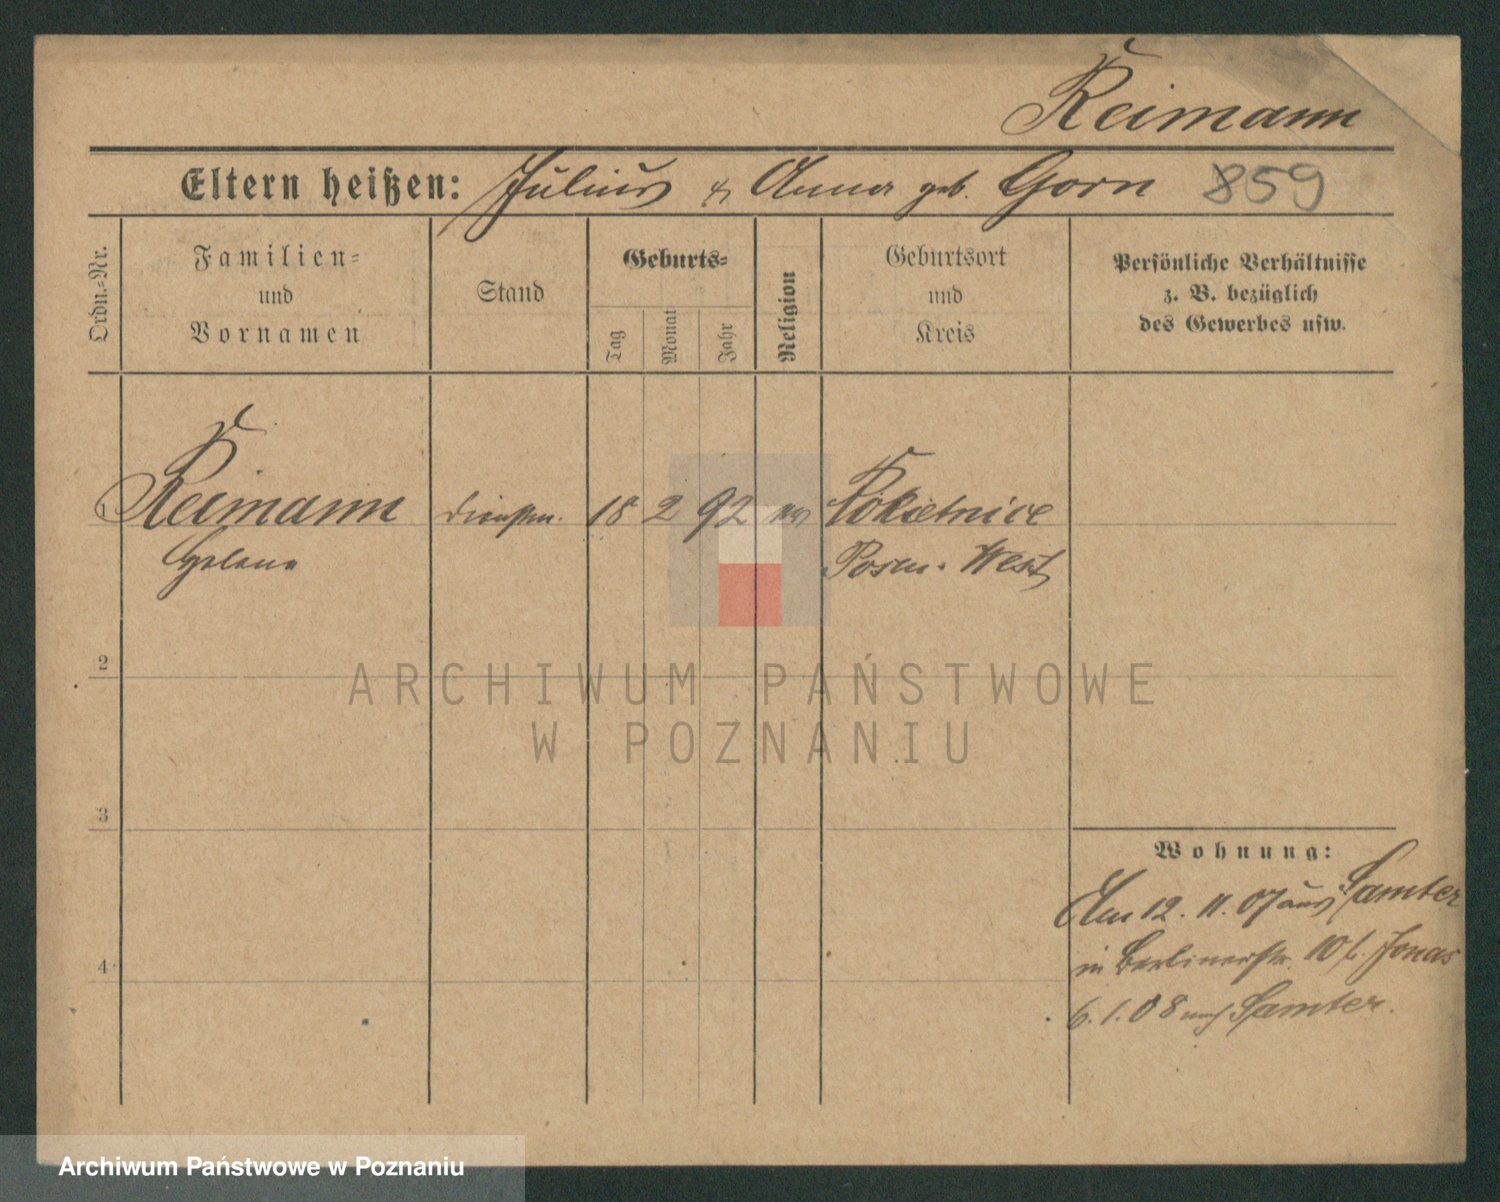 Reimann
Eltern heißen: Julius & Anna geb. Gorn 859
Ordn.-Nr.
Familien-
und
Vornamen
Stand
Geburts-
Tag
Monat
Jahr
Religion
Geburtsort
und
Kreis
Persönliche Verhältnisse
z. B. bezüglich
des Gewerbes usw.
1 Reimann 18 2 92 Rokietnice
Helene Posen. West
2
3
4
ARCHIWUM PAŃSTWOWE
W POZNANIU
Wohnung:
Am 12. 11. 07 aus Samter
in Berlinerstr. 10 b. Jonas
6. 1. 08 nach Samter.
Archiwum Państwowe w Poznaniu